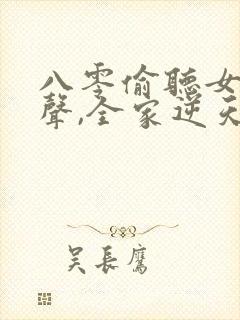 八零偷聽女
聲,全家逆天
吴長鷹